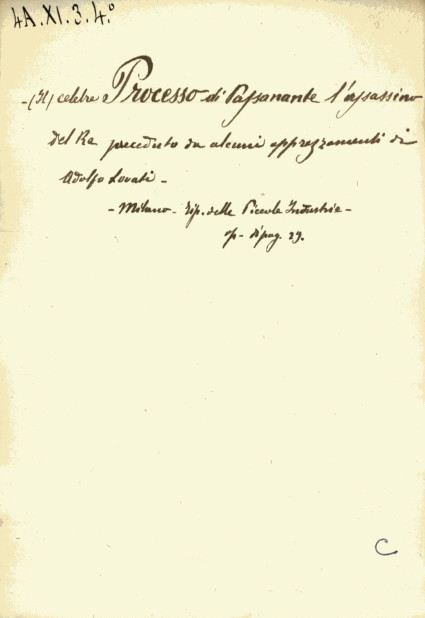 4A.XI.3.4.°
- (Il) celebre Processo di Passanante l'assassino
del Re preceduto da alcuni apprezzamenti di
Adolfo Lovati -
- Milano - Tip. delle Piccole Industrie -
op - di pag. 29.
C